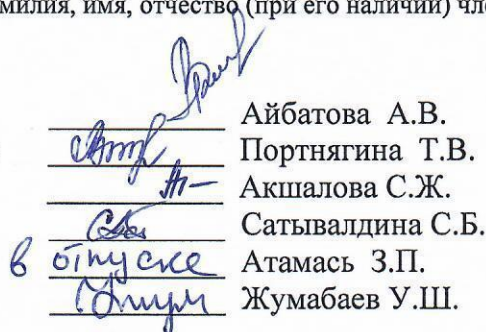 милия, имя, отчество (при его наличии) чле
Айбатова А.В.
Портнягина Т.В.
Акшалова С.Ж.
Сатывалдина С.Б.
в отпуске Атамась З.П.
Жумабаев У.Ш.